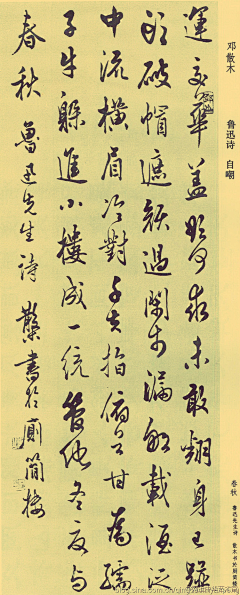 邓散木 鲁迅诗 自嘲
運交華蓋欲何求未敢翻身已碰
頭破帽遮顏過鬧市漏船載酒泛
中流橫眉冷對千夫指俯首甘為孺
子牛躲進小樓成一統管他冬夏與
春秋 魯迅先生詩 散木書於廁簡樓